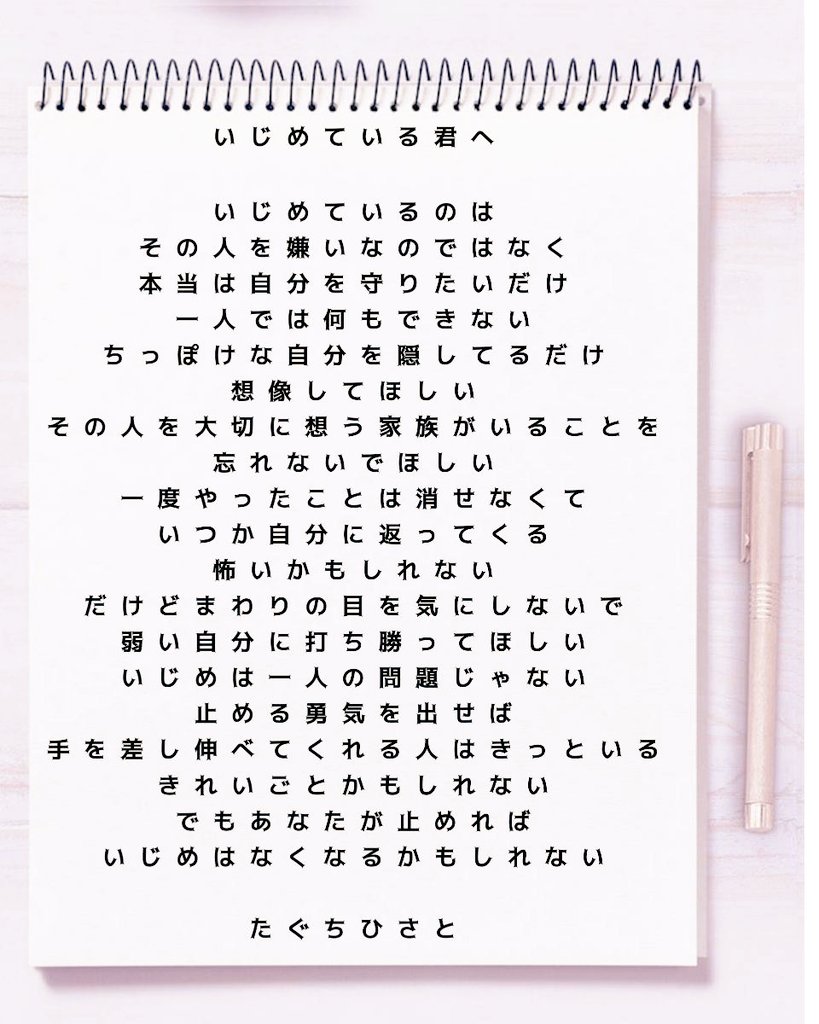 いじめている君へ
いじめているのは
その人を嫌いなのではなく
本当は自分を守りたいだけ
一人では何もできない
ちっぽけな自分を隠してるだけ
想像してほしい
その人を大切に想う家族がいることを
忘れないでほしい
一度やったことは消せなくて
いつか自分に返ってくる
怖いかもしれない
だけどまわりの目を気にしないで
弱い自分に打ち勝ってほしい
いじめは一人の問題じゃない
止める勇気を出せば
手を差し伸べてくれる人はきっといる
きれいごとかもしれない
でもあなたが止めれば
いじめはなくなるかもしれない
たぐちひさと